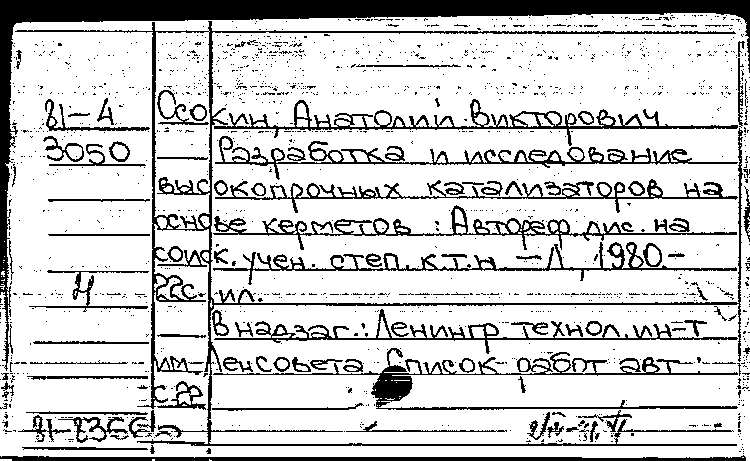 81-4 Осокин, Анатолий Викторович.
3050 Разработка и исследование
высокопрочных катализаторов на
основе керметов : Автореф. дис. на
соиск. учен. степ. к.т.н. - Л., 1980.-
Н 22с., ил.
В надзаг.: Ленингр. технол. ин-т
им. Ленсовета. Список работ авт.:
с 22
81-8356